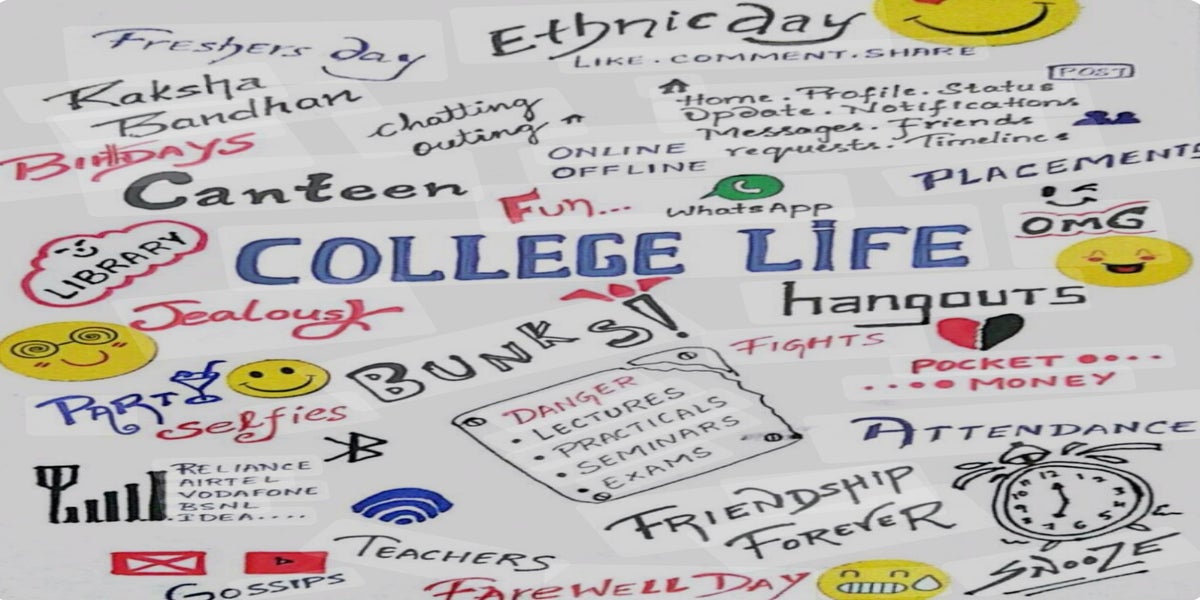 Freshers day
Ethnic day
LIKE.COMMENT.SHARE
Raksha
Bandhan
chatting
outing
POST
Home. Profile. Status
Update. Notifications
Messages. Friends
requests. Timelines
BIRTHDAYS
ONLINE
OFFLINE
PLACEMENTS
Canteen
Fun...
WhatsApp
OMG
LIBRARY
COLLEGE LiFE
Jealousy
BUNKS!
hangouts
FIGHTS
POCKET
MONEY
PARTY
selfies
DANGER
• LECTURES
• PRACTICALS
• SEMINARS
• EXAMS
ATTENDANCE
RELIANCE
AIRTEL
VODAFONE
BSNL
IDEA....
FRIENDSHIP
FOREVER
TEACHERS
SNOOZE
GOSSIPS
FAREWELL DAY